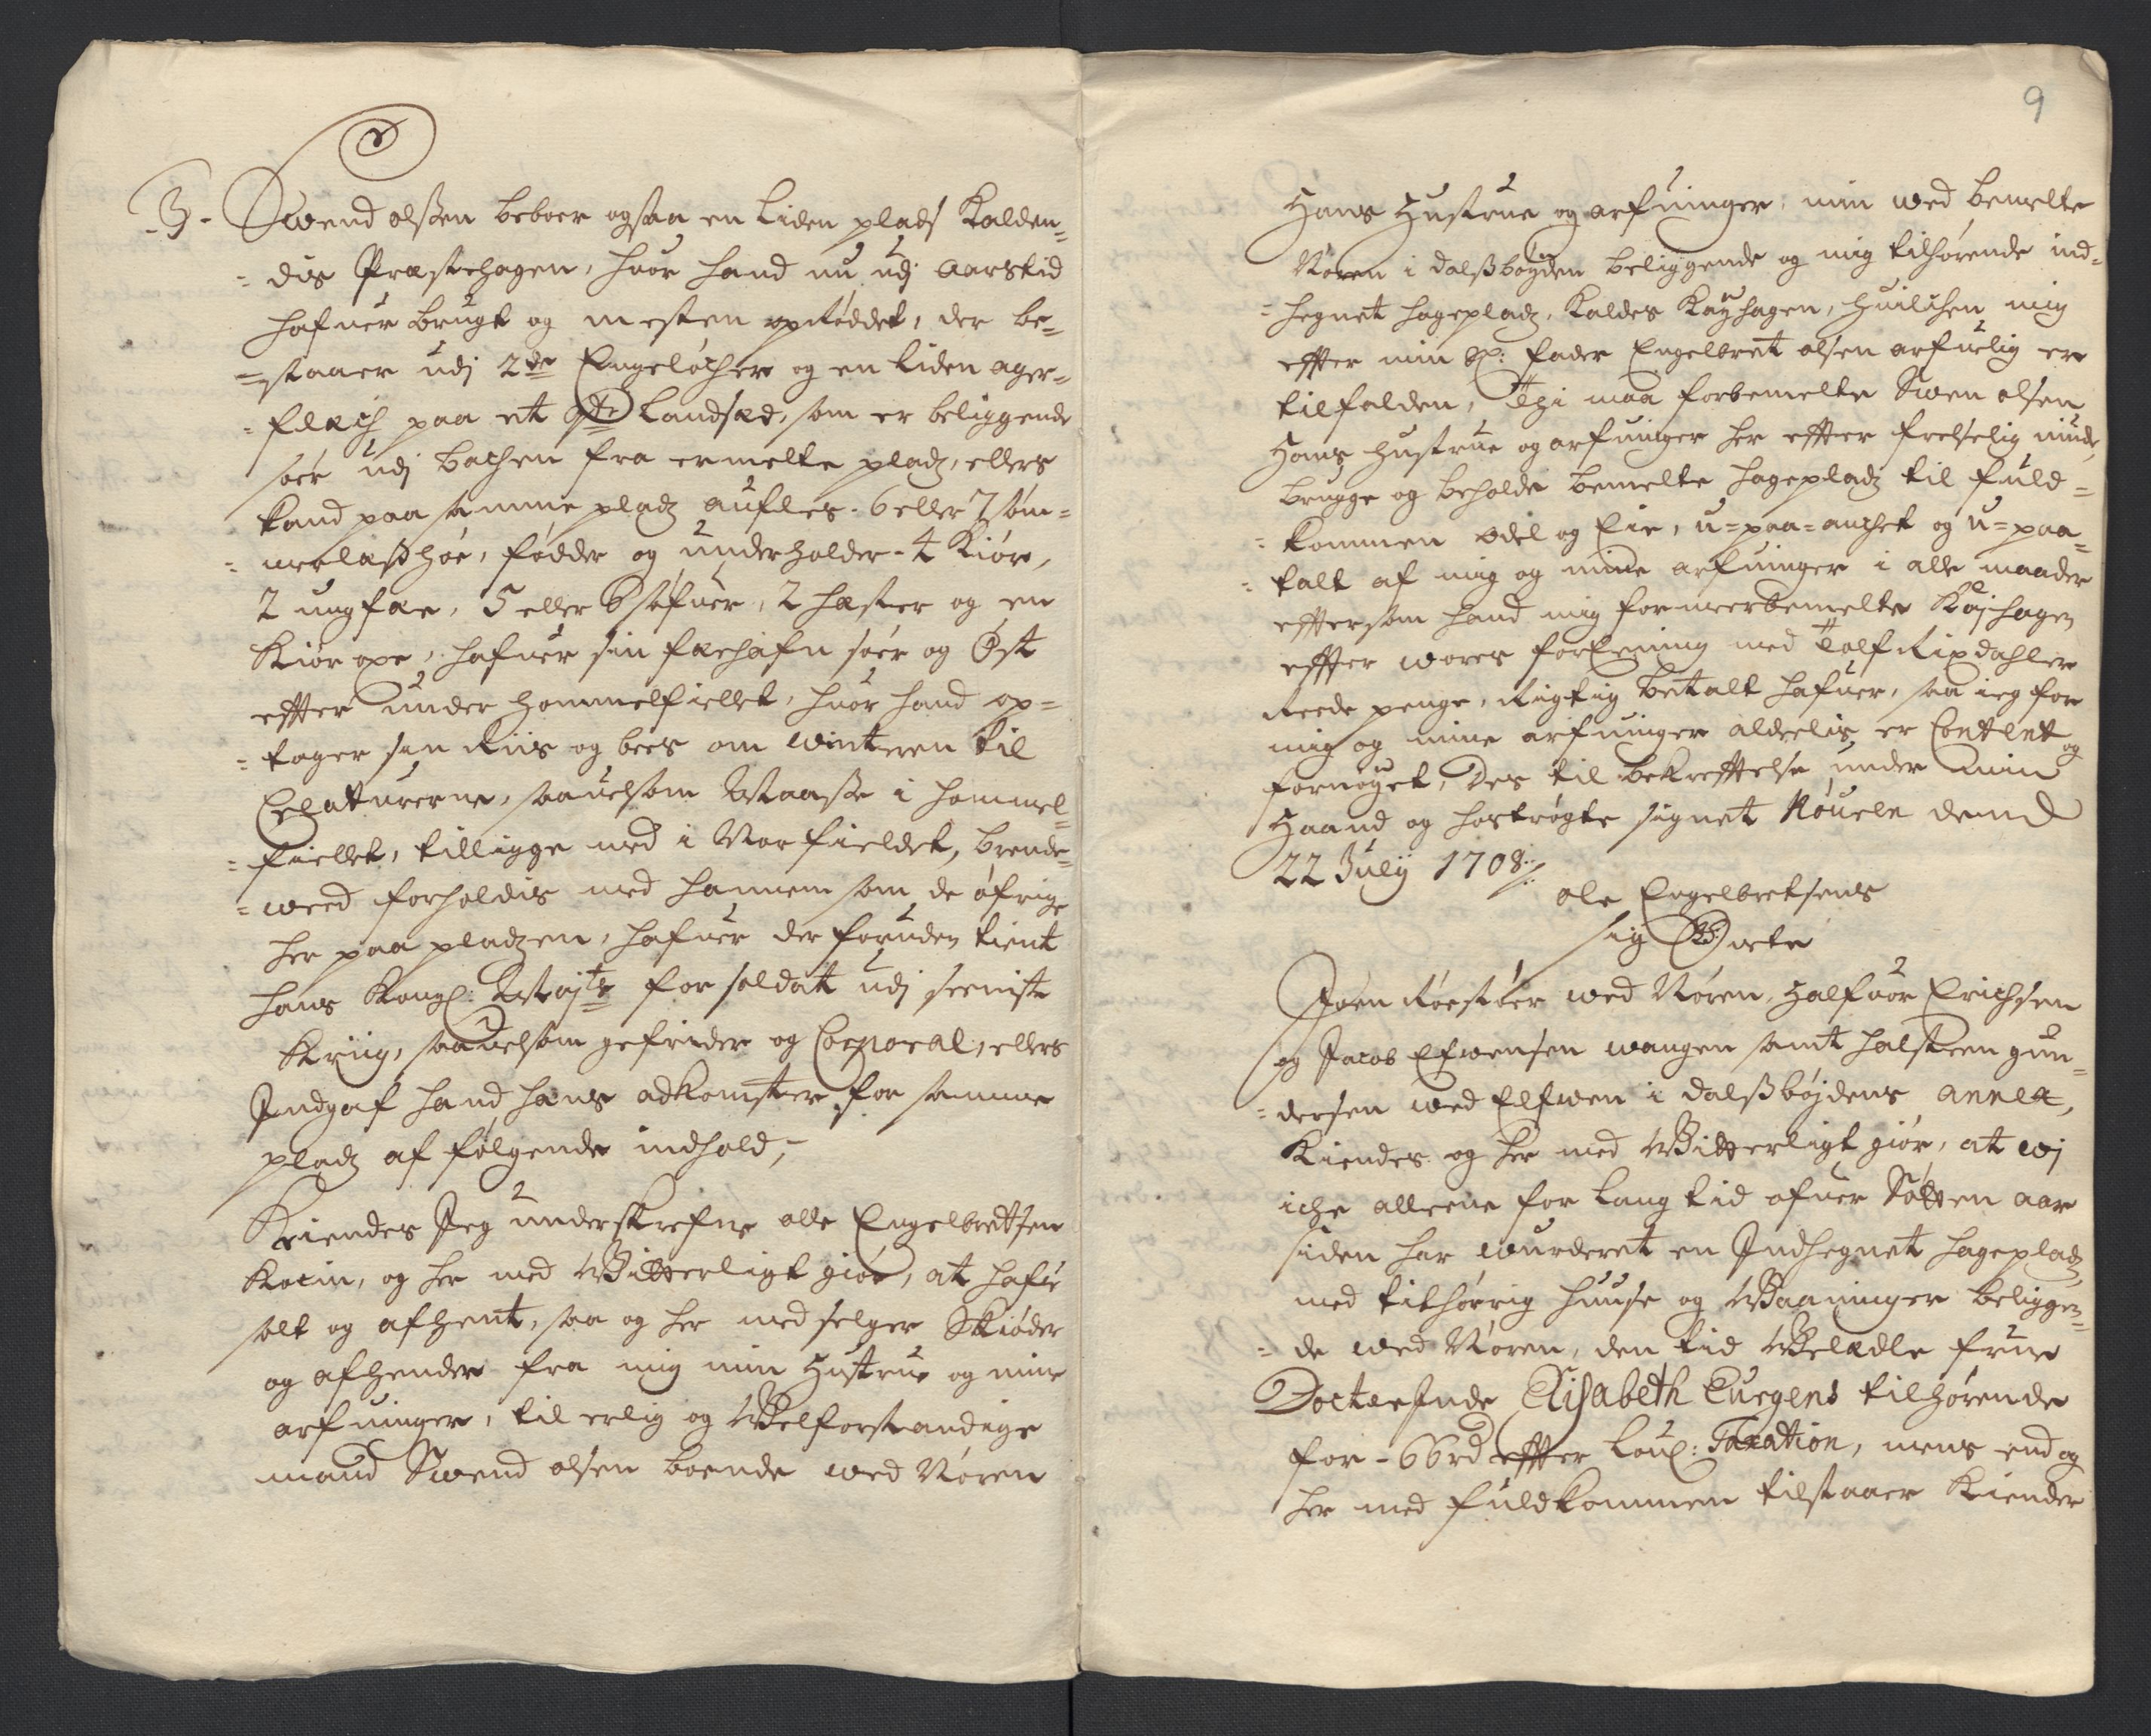 9
3. Swend olsßen beboer ogsaa en liden plads Kalden=
=dis Præstehagen, huor hand nu udj Aars tid
hafuer brugt og mesten opRøddet, der be=
=staaer udj 2de Engeløcher og en liden ager=
=flæch paa et qtr landsæd, som er beliggende
sør udj bachen fra ermelte pladz, ellers
kand paa samme pladz aufles. 6 eller 7 som=
=merlaß høe, fødder og underholder. 4 Kiør,
2 ungfæe, 5 eller 6 søfuer, 2 hæster og en
Kiør oxe, hafuer sin fæehafn sør og Øst
effter under Hommelfiellet, huor hand op=
=tager sin Riis og bees om winteren til
Creaturerne, sauelsom Maasse i Hommel=
=fiellet, tilligge med i Norfieldet, brende=
=weed forholdis med hannem som de øfrige
her paa pladzen, hafuer der foruden tient
hans Kongl: Maÿts for soldat udj seeniste
Kriig, sauelsom gefrider og Corporal, ellers
Indgaf hand hans adkomster for samme
pladz af følgende indhold,
Kiendes Jeg underskrefne olle Engelbrettsen
og her med Witterligt giør, at hafue
solt og afhent, saa og her med selger Skiøder
og afhender fra mig min Hustrue og mine
arfuinger, til erlig og Welforstandige
mand Swend olsen boende wed Røren
Hans Hustrue og arfuinger, min wed bemelte
Røren i dalsßbøÿden beliggende og mig tilhørende ind=
=hegnet hagepladz, Kaldes Kaÿhagen, huilchen mig
effter min Sl: fader Engelbret olsen arfuelig er
tilfalden, Thi maa forbemelte Swen olsen
Hans Hustrue og arfuinger her effter frelselig niude,
brugge og beholde bemelte hagepladz til fuld=
=kommen odel og Eie, u=paa=anchet og u=paa=
=talt af mig og mine arfuinger i alle maader
effter som hand mig for meerbemelte Køjhagen
effter wores forEening med Tolf Rixdahler
reede penge, Rigtig betalt hafuer, saa ieg for
mig og mine arfuinger aldeelis er Content og
fornøÿet, Des til bekrefftelse under min
Haand og hostrøgte signet Røuele dend
22 Julÿ 1708
ole Engelbretsens
sig
Joen wed Røren, Halfuor Erichsen
og Jacob Efwensen wangen samt halsteen gun=
=dersen wed Elfwen i dalsßbøjdens annex,
Kiendes og her med Witterligt giør, at wj
iche alleene for lang tid ofuer Søtten aar
siden har wurderet en Indhegnet hagepladz
med tilhørrig huuse og Waaninger beliggen=
=de wed Røren, den tid Welædle frue
Elisabeth Curgens tilhørende
for - 66rd effter Loul: Taxation, mens end og
her med fuldkommen tilstaaer Kiender